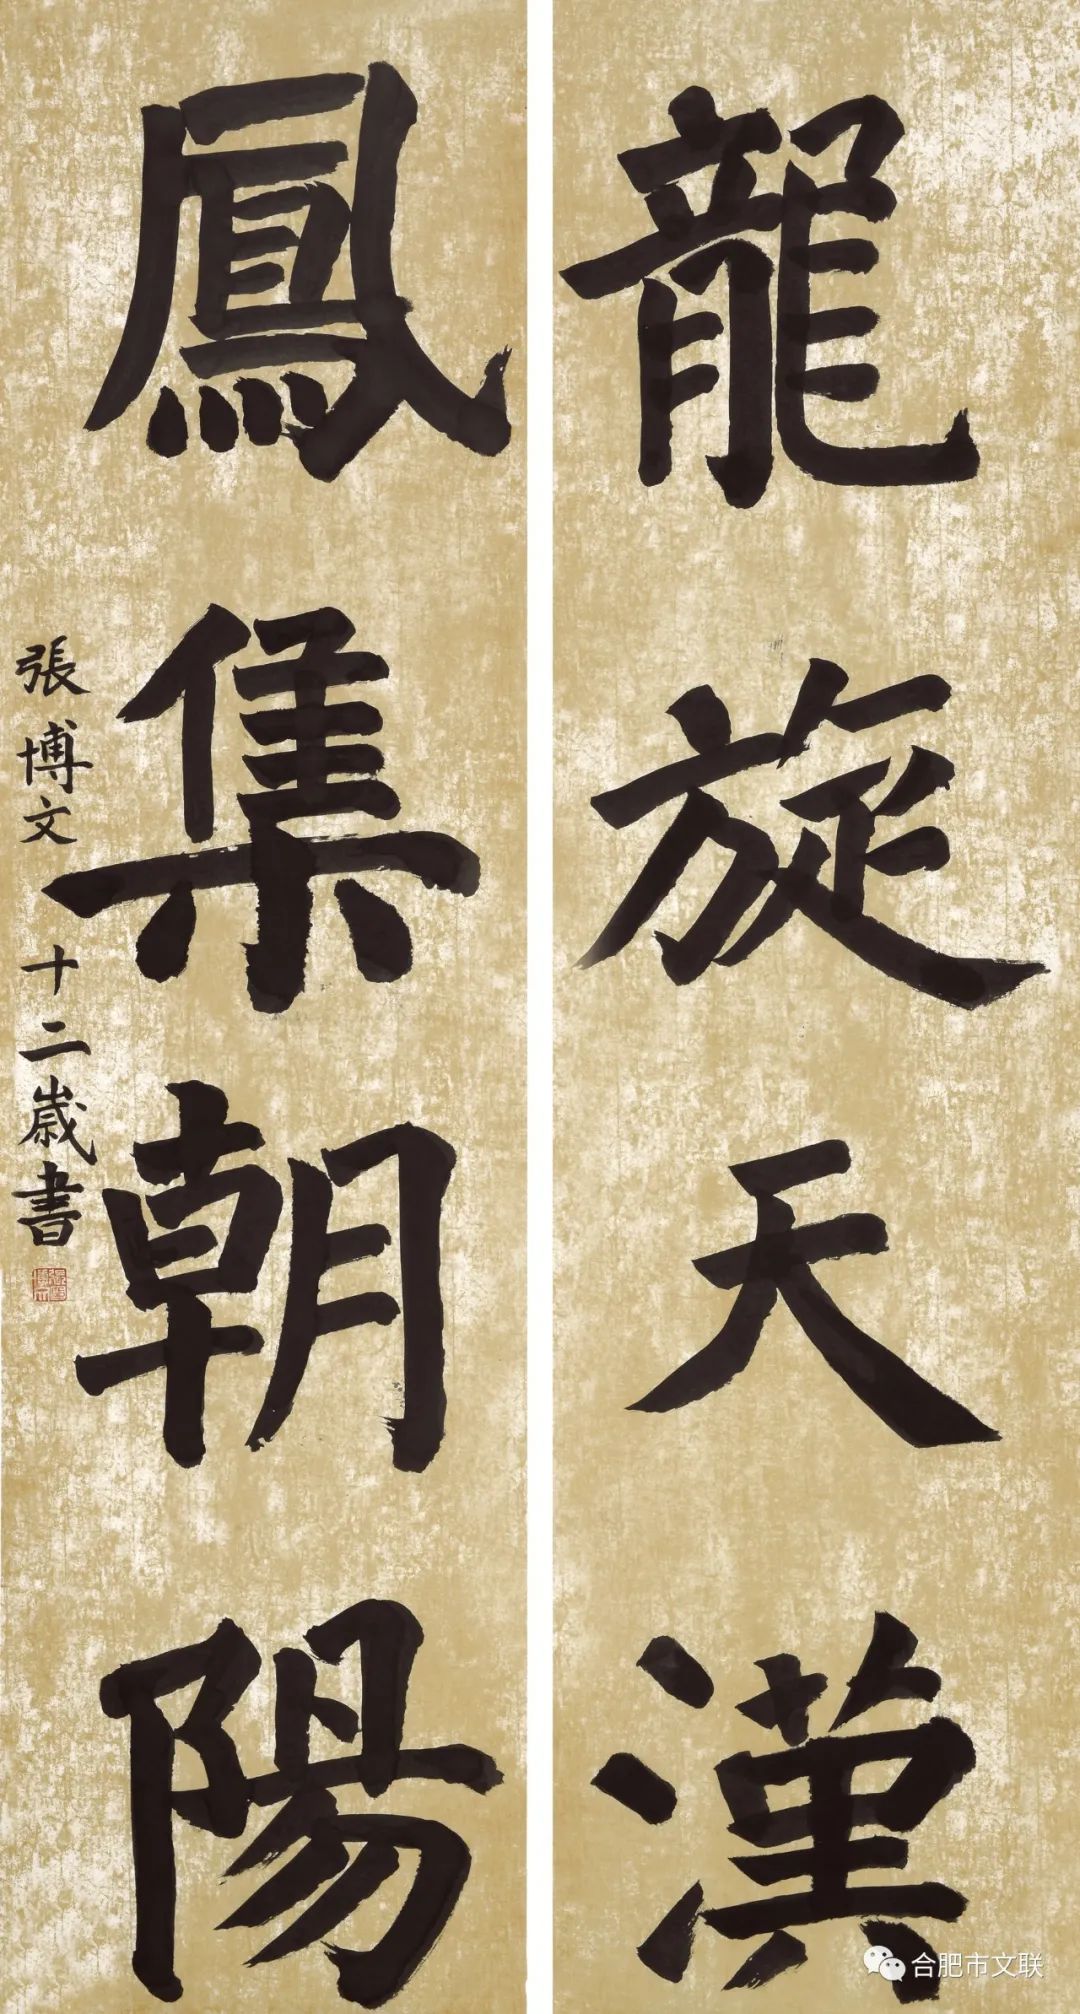 龍旋天漢
鳳集朝陽
張博文 十二歲書
合肥市文联